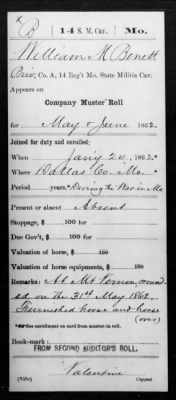 x
B | 14 S. M. Cav. | Mo.
William M Benett
Priv., Co. A, 14 Reg't Mo. State Militia Cav.
Appears on
Company Muster Roll
for May & June 1862.
Joined for duty and enrolled:
When Jan'y 20, 1862.*
Where Dallas Co. Mo.
Period years.* During the War in Mo
Present or absent Absent
Stoppage, $ 100 for
Due Gov't, $ 100 for
Valuation of horse, $ 100
Valuation of horse equipments, $ 100
Remarks: At Mt Vernon, wound
ed on the 31st May 1862.
Furnished horse and horse
(over)
*See enrollment on card from muster-in roll.
Book-mark:
FROM SECOND AUDITOR'S ROLL.
Valentine
Copyist.